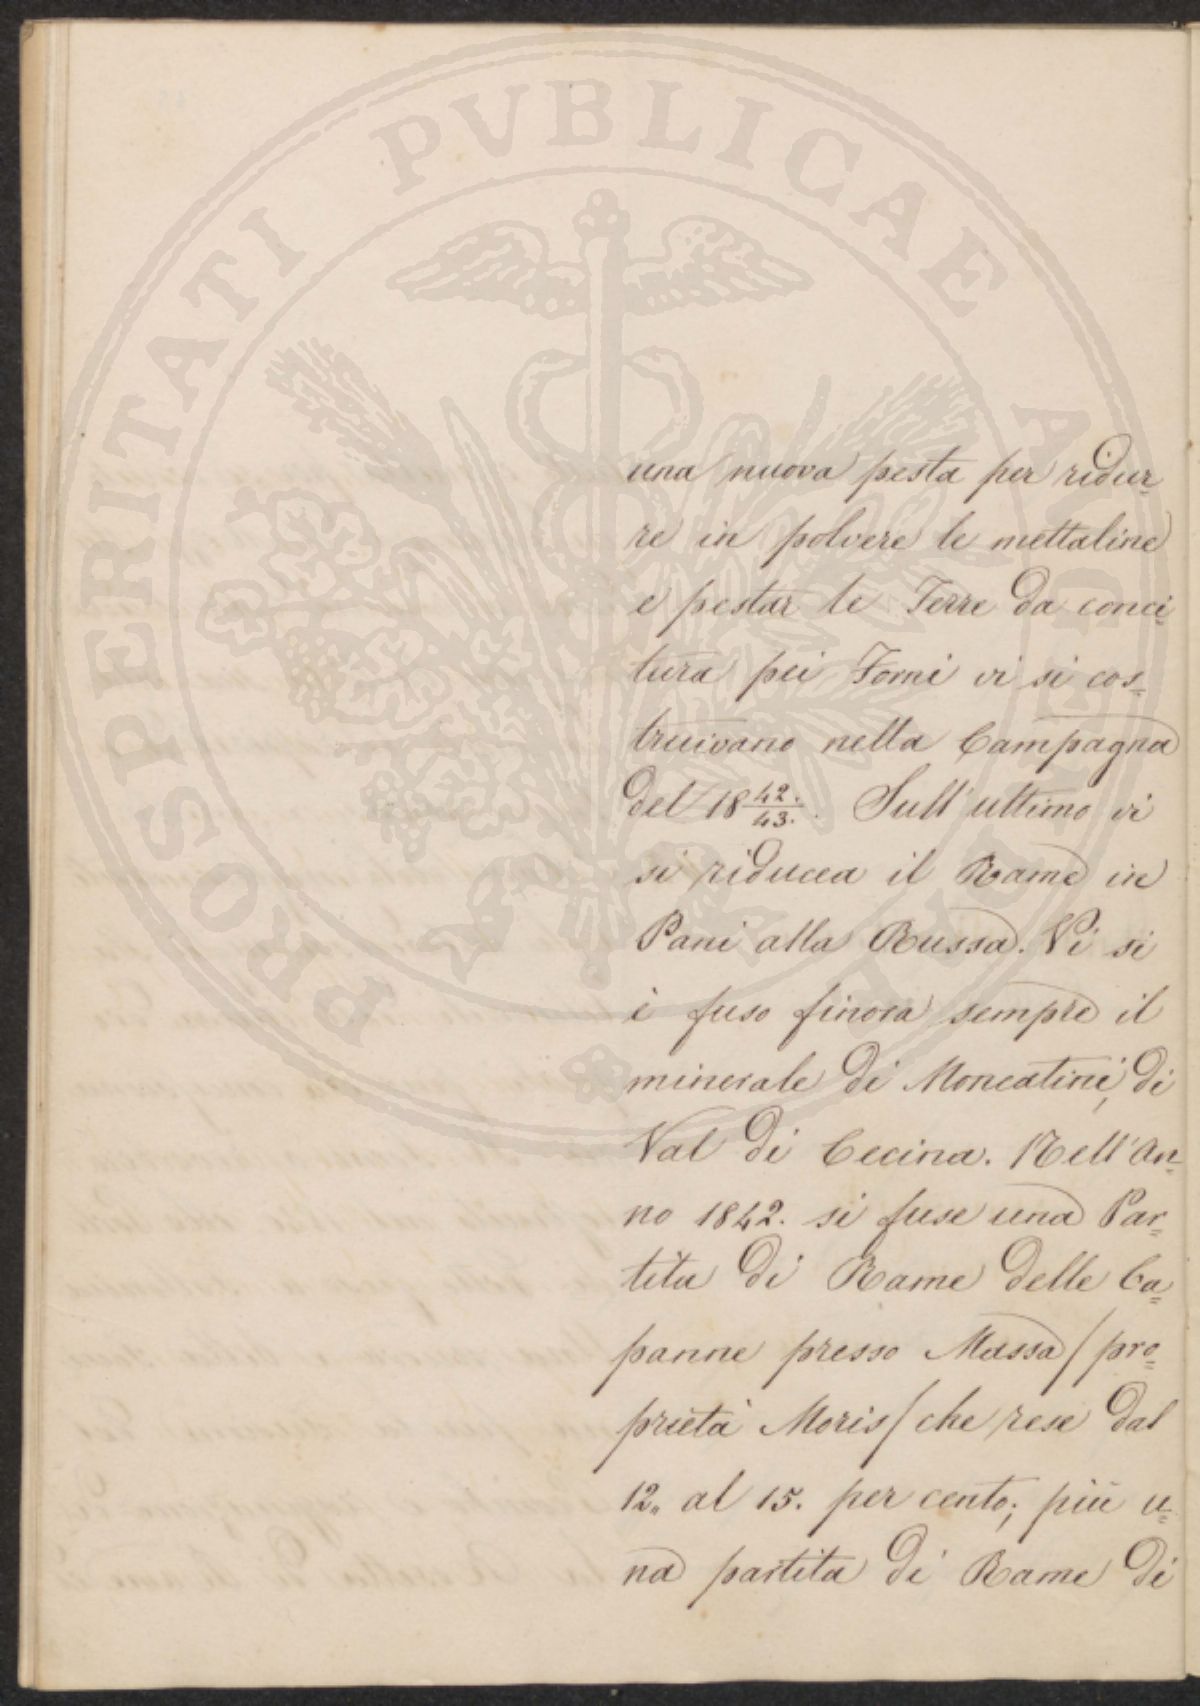 PROSPERITATI PVBLICAE AVGENDAE
una nuova pesta per ridur=
re in polvere le mettaline
e pestar le Terre da conci=
tura pei Forni vi si cos=
truivano nella Campagna
del 18 42./43. Sull'ultimo vi
si riducea il Rame in
Pani alla Russa. Vi si
è fuso finora sempre il
minerale di Moncatini, di
Val di Cecina. Nell'An=
no 1842. si fuse una Par=
tita di Rame delle Ca=
panne presso Massa / pro=
prietà Moris / che rese dal
12. al 15. per cento; più u=
na partita di Rame di